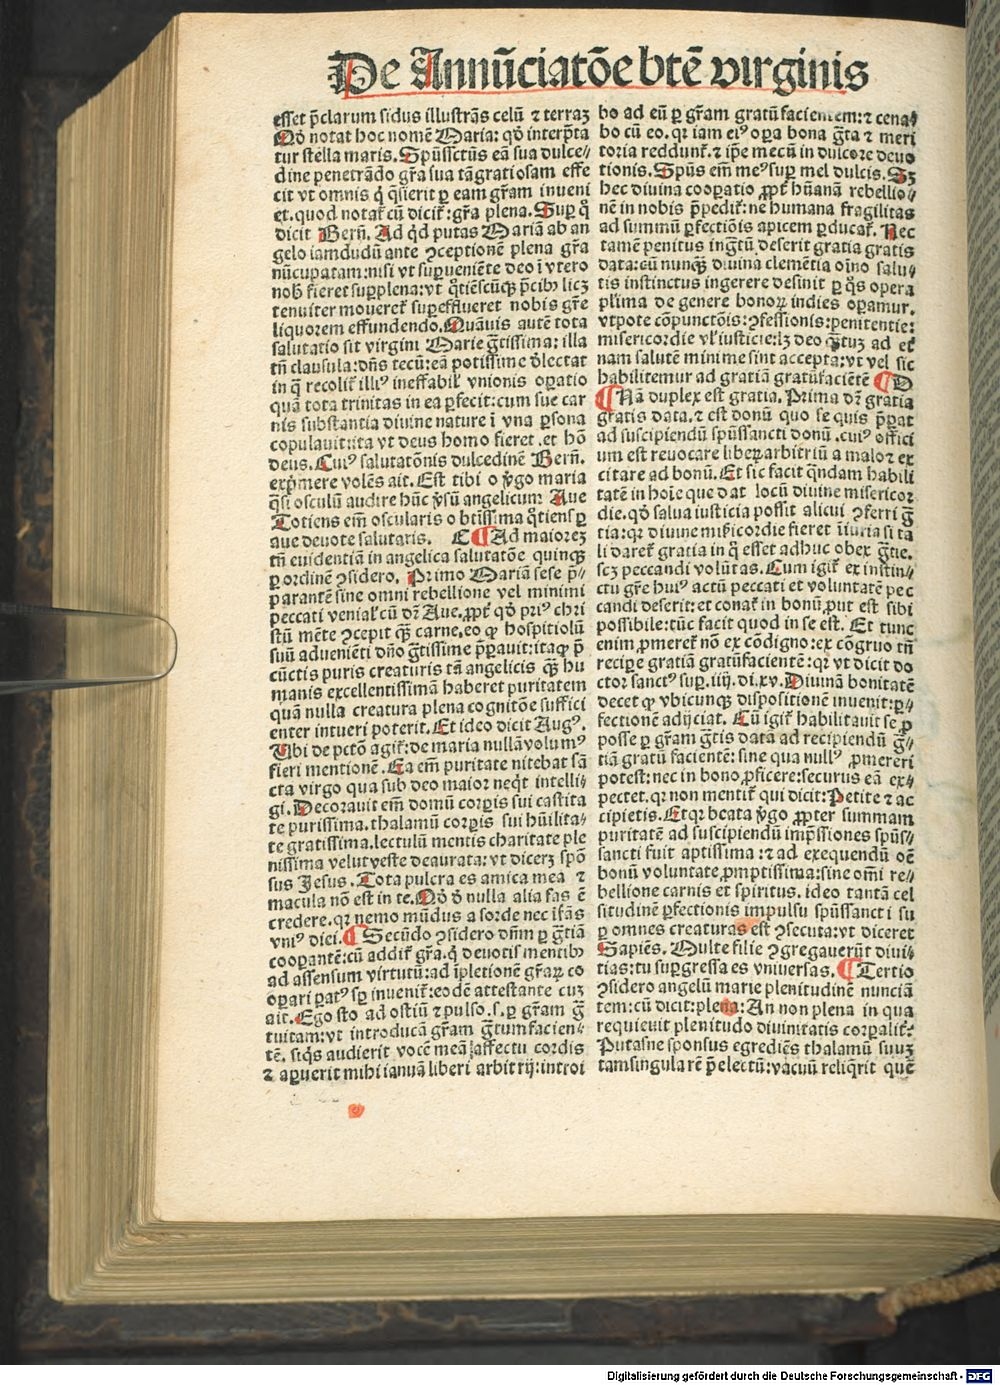 De Annūciatōe btē virginis
esset p̄clarum sidus illustrās celū ⁊ terraꝫ
Qḋ notat hoc nomē Maria: qḋ interp̄ta
tur stella maris. Spūssctūs eā sua dulce⸗
dine penetrādo gr̄a sua tā gratiosam effe
cit vt omnis q̇ q̄sierit ꝑ eam gr̄am inueni
et. quod notat᷑ cū dicit᷑: gr̄a plena. Suꝑ q̊
dicit Bern̄. Ad qḋ putas Mariā ab an
gelo iamdudū ante ꝯceptionē plena gr̄a
nūcupatam: nisi vt suꝑueniēte deo ī vtero
nob̄ fieret suꝑplena: vt q̊tiēscūqꝫ p̄cibꝰ licꝫ
tenuiter moueret᷑ suꝑefflueret nobis gr̄e
liquorem effundendo. Quāuis autē tota
salutatio sit virgini Marie ḡtissima: illa
tn̄ clausula: dn̄s tecū: eā potissime ꝺ̄lectat
in q̄ recolit᷑ illiꝰ ineffabil̕ vnionis oꝑatio
quā tota trinitas in ea ꝑfecit: cum sue car
nis substantia diuine nature ī vna ꝑsona
copulauit: ita vt deus homo fieret. et hō
deus. Cuiꝰ salutatōnis dulcedinē Bern̄.
exp̄mere volēs ait. Est tibi o ꝟgo maria
q̄si osculū audire hūc ꝟsū angelicum Aue
Totiens em̄ oscularis o btīssima q̊tiens ꝑ
aue deuote salutaris. C ¶ Ad maiorez
tn̄ euidentiā in angelica salutatōe quinqꝫ
ꝑ ordinē ꝯsidero. Primo Mariā sese p̄⸗
parantē sine omni rebellione vel minimi
peccati venial̕ cū dr̄ Aue. ꝓpt᷑ qḋ priꝰ chri
stū mēte ꝯcepit q̄ꝫ carne. eo ꝙ hospitiolū
suū aduenienti dn̄o ḡtissime p̄parauit: itaqꝫ p̄
cūctis puris creaturis tā angelicis q̄ꝫ hu
manis excellentissimā haberet puritatem
quā nulla creatura plena cognitōe suffici
enter intueri poterit. Et ideo dicit Augꝰ.
Ubi de pctō agit᷑: de maria nullā volumꝰ
fieri mentionē. Ea em̄ puritate nitebat sā
cta virgo qua sub deo maior neq̇t intelli⸗
gi. Decorauit em̄ domū corꝑis sui castita
te purissima. thalamū corꝑis sui hūilita⸗
te gratissima. lectulū mentis charitate ple
nissima velut veste deaurata: vt dicerꝫ spō
sus Jesus. Tota pulcra es amica mea ⁊
macula nō est in te. Qḋ ꝺ̄ nulla alia fas ē
credere. qꝛ nemo mūdus a sorde nec īfās
vniꝰ diei. ¶ Secūdo ꝯsidero dn̄m ꝑ ḡtiā
cooꝑantē: cū addit᷑ gr̄a. q̇ deuotis mentibꝰ
ad assensum virtutū: ad īpletionē gr̄aꝝ co
oꝑari ꝑatꝰ sꝑ inuenit᷑: eodē attestante cuꝫ
ait. Ego sto ad ostiū ⁊ pulso. s. ꝑ gr̄am ḡ
tuitam: vt introducā gr̄am ḡtumfacien⸗
tē. siq̇s audierit vocē meā affectu cordis
⁊ aꝑuerit mihi ianuā liberi arbitrij: introi
bo ad eū ꝑ gr̄am gratūfacientem: ⁊ cena⸗
bo cū eo. qꝛ iam eiꝰ oꝑa bona ḡta ⁊ meri
toria reddunt᷑. ⁊ ip̄e mecū in dulcore deuo
tionis. Spūs em̄ meꝰ suꝑ mel dulcis. Sꝫ
hec diuina cooꝑatio ꝓpt᷑ hūanā rebellio⸗
nē in nobis p̄pedit᷑: ne humana fragilitas
ad summū ꝑfectiōis apicem ꝑducat᷑. Nec
tamē penitus inḡtū deserit gratia gratis
data: cū nunqꝫ̄ diuina clemētia oīno salu⸗
tis instinctus ingerere desinit ꝑ q̊s opera
pl̕ima de genere bonoꝝ indies oꝑamur.
vtpote cōpunctōis: ꝯfessionis: penitentie:
misericordie vl̕ iusticie: lꝫ deo q̄tuꝫ ad et᷑
nam salutē minime sint accepta: vt vel sic
habilitemur ad gratiā gratūfaciētē ¶ D
¶ Nā duplex est gratia. Prima dr̄ gratia
gratis data. ⁊ est donū quo se quis p̄ꝑat
ad suscipiendū spūssancti donū. cuiꝰ offici
um est reuocare liberꝝ arbitriū a malo ⁊ ex
citare ad bonū. Et sic facit q̄ndam habili
tatē in hoīe que dat locū diuine misericoꝛ
die. qḋ salua iusticia possit alicui ꝯferri ḡ
tia: qꝛ diuine mīs̄ricordie fieret īiuria si ta
li daret᷑ gratia in q̄ esset adhuc obex ḡtie.
scꝫ peccandi volūtas. Cum igit᷑ ex instin⸗
ctu gr̄e huiꝰ actū peccati et voluntatē pec
candi deserit: et conat᷑ in bonū ꝓut est sibi
possibile: tūc facit quod in se est. Et tunc
enim ꝓmeret᷑ nō ex cōdigno: ex cōgruo tn̄
recipe gratiā gratūfacientē: qꝛ vt dicit do
ctor sanctꝰ suꝑ. iiij. di. xv. Diuinā bonitatē
decet ꝙ vbicunqꝫ dispositionē inuenit: ꝑ⸗
fectionē adijciat. Cū igit᷑ habilitauit se ꝓ
posse ꝑ gr̄am ḡtis data ad recipiendū ḡ⸗
tiā gratū faciente: sine qua nullꝰ ꝓmereri
potest: nec in bono ꝓficere: securus eā ex⸗
pectet. qꝛ non mentit᷑ qui dicit: Petite ⁊ ac
cipietis. Et qꝛ beata ꝟgo ꝓpter summam
puritatē ad suscipiendū imp̄ssiones spūs⸗
sancti fuit aptissima: ⁊ ad exequendū oē
bonū voluntate ꝓmptissima: sine om̄i re⸗
bellione carnis et spiritus. ideo tantā cel
situdinē ꝑfectionis impulsu spūssancti su
ꝑ omnes creaturas est ꝯsecuta: vt diceret
Sapiēs. Multe filie ꝯgregauerūt diui⸗
tias: tu suꝑgressa es vniuersas. ¶ Tertio
ꝯsidero angelū marie plenitudinē nunciā
tem: cū dicit: plena: An non plena in qua
requieuit plenitudo diuinitatis corꝑalit᷑:
Putasne sponsus egrediēs thalamū suuꝫ
tam singularē p̄electū: vacuū reliq̇rit quē
Digitalisierung gefördert durch die Deutsche Forschungsgemeinschaft - DFG